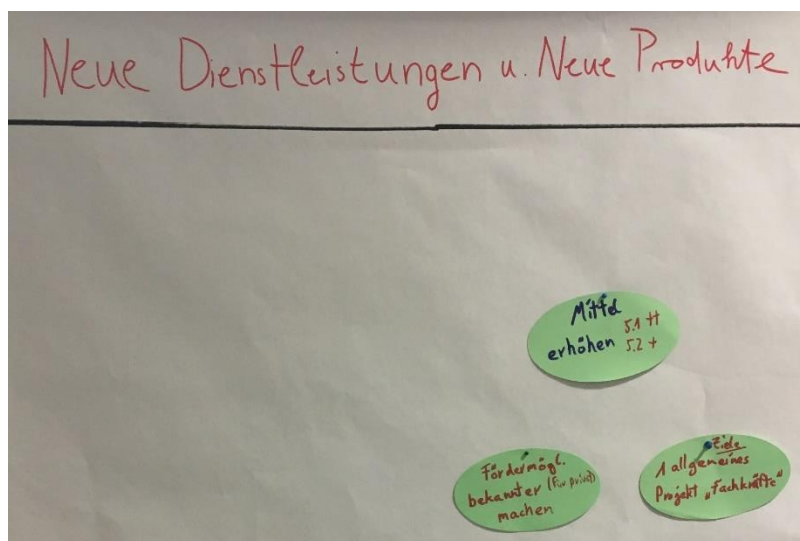 Neue Dienstleistungen u. Neue Produkte
Mittel
erhöhen
5.1 ++
5.2 +
Fördermögl.
bekannter (für privat)
machen
Ziele
1 allgemeines
Projekt „Fachkräfte"